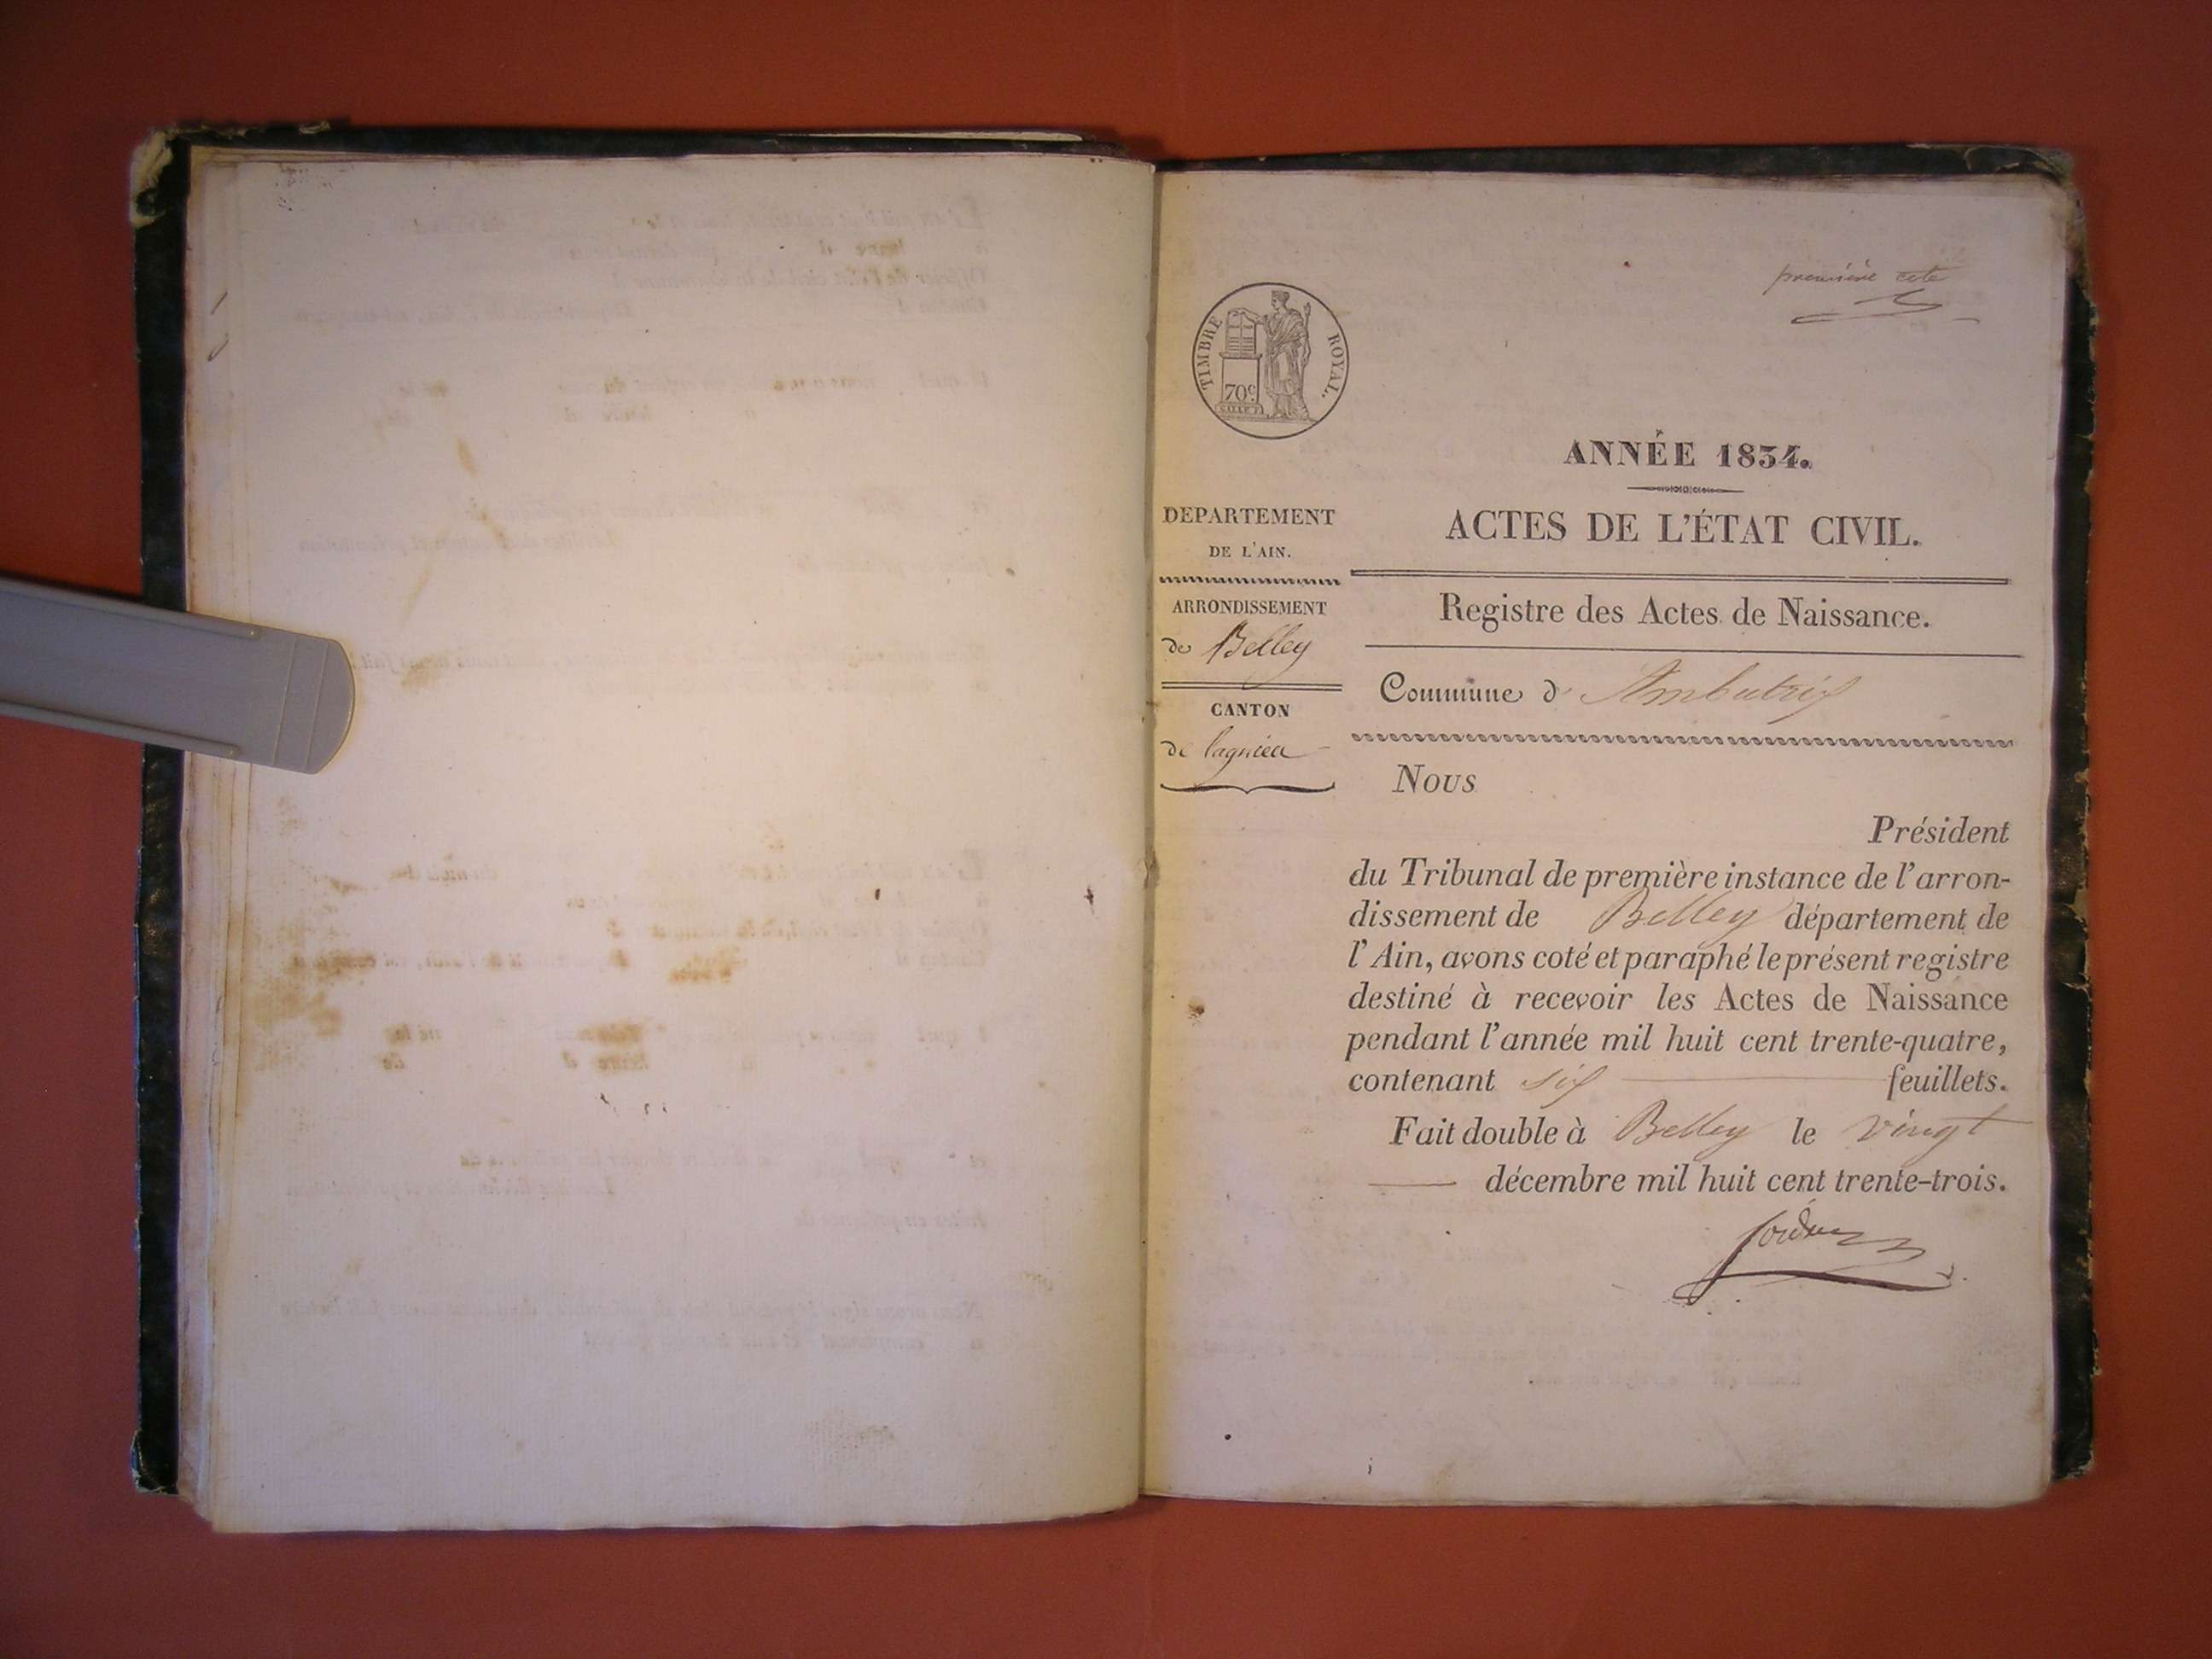 première cote
TIMBRE ROYAL.
70c
ANNÉE 1834.
ACTES DE L'ÉTAT CIVIL.
Registre des Actes de Naissance.
Commune d' Ambutrix
DEPARTEMENT
DE L'AIN.
ARRONDISSEMENT
de Belley
CANTON
de lagnieu
Nous
Président
du Tribunal de première instance de l'arron-
dissement de Belley département de
l'Ain, avons coté et paraphé le présent registre
destiné à recevoir les Actes de Naissance
pendant l'année mil huit cent trente-quatre,
contenant six feuillets.
Fait double à Belley le vingt
décembre mil huit cent trente-trois.